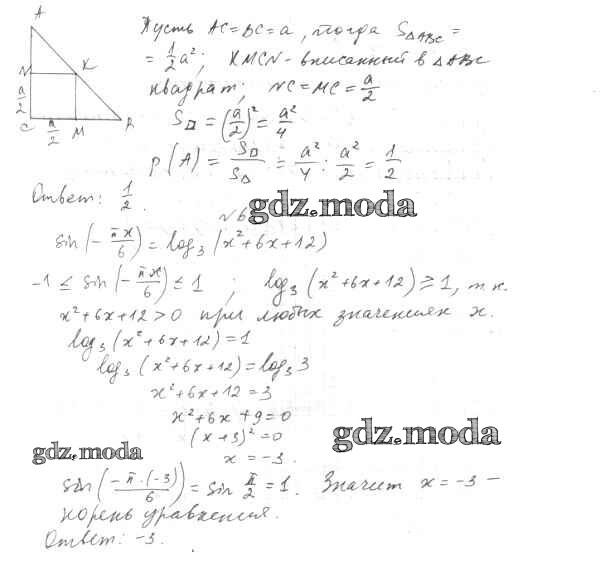 A
N
K
a/2
C
a/2
M
B
Пусть AC=BC=a, тогда S△ABC =
= 1/2 a²; KMCN - вписанный в △ABC
квадрат; NC = MC = a/2
S□ = (a/2)² = a²/4
P(A) = S□/S△ = a²/4 : a²/2 = 1/2
Ответ: 1/2.
№6
gdz.moda
sin(-πx/6) = log₃(x²+6x+12)
-1 ≤ sin(-πx/6) ≤ 1 ; log₃(x²+6x+12) ≥ 1, т.к.
x²+6x+12>0 при любых значениях x.
log₃(x²+6x+12)=1
log₃(x²+6x+12)=log₃3
x²+6x+12=3
x²+6x+9=0
(x+3)²=0
gdz.moda
gdz.moda
x=-3.
sin(-π·(-3)/6) = sin π/2 = 1. Значит x=-3 -
корень уравнения.
Ответ: -3.